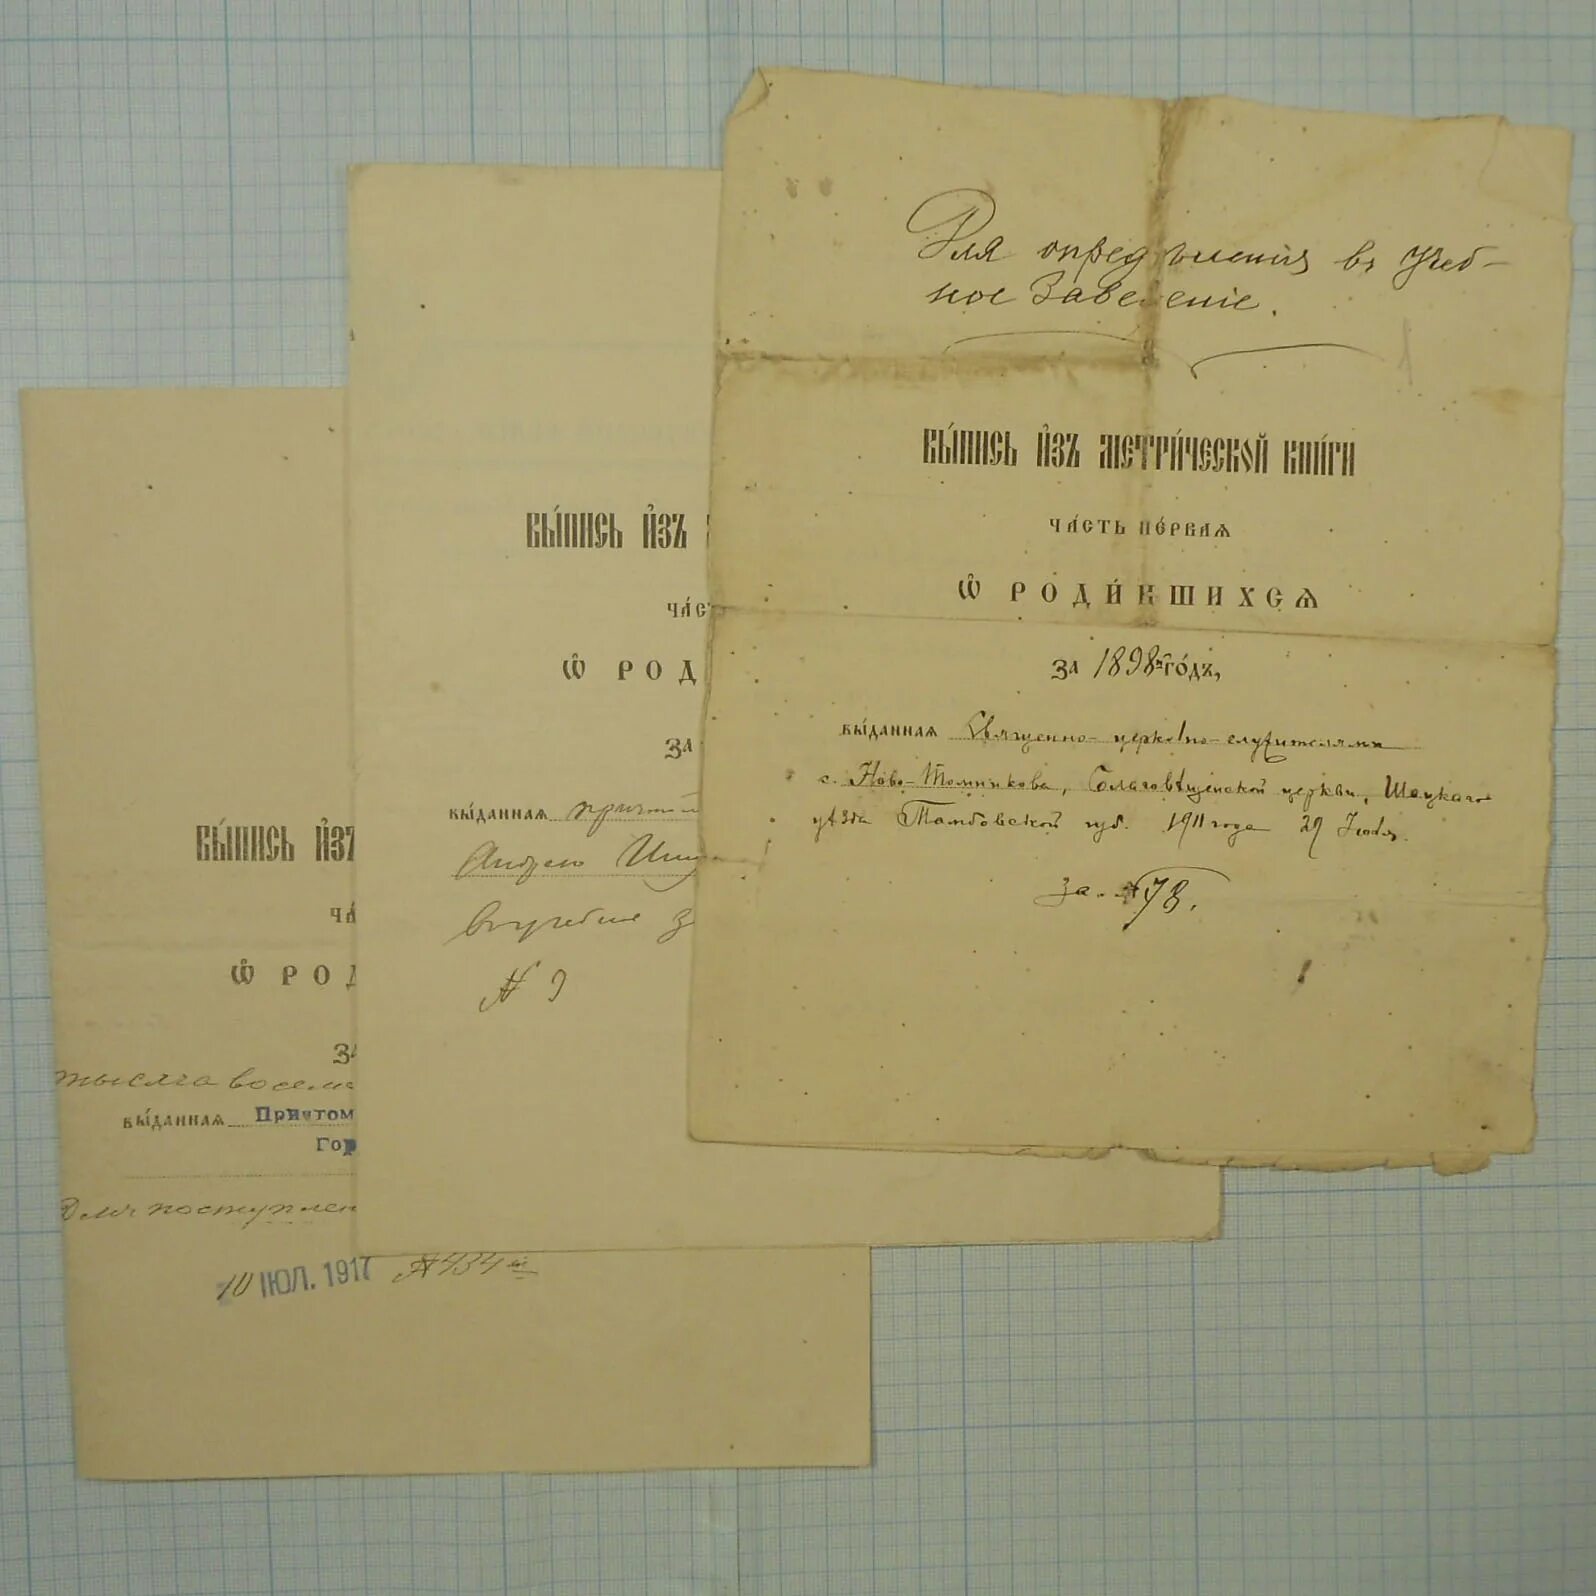 Для опредѣленія въ Учеб-
ное Заведеніе.
вы́пись и҆зъ метри́ческой кни́ги
ча́сть пе́рваѧ
ѡ҆ роди́вшихсѧ
за 1898й го́дъ,
вы́даннаѧ Священно-церковно-служителями
с. Ново-Томникова, Благовѣщенской церкви, Шацкаго
уѣзда Тамбовской губ. 1911 года 29 Іюля.
за № 78.
вы́пись и҆зъ
ча́с
ѡ҆ род
за
вы́даннаѧ причтом
Андрею
в учебное з
№ 9
вы́пись и҆зъ
ча́
ѡ҆ род
за
тысяча восемь
вы́даннаѧ Причтом
Гор
для поступлен
10 ІЮЛ. 1917 № 434